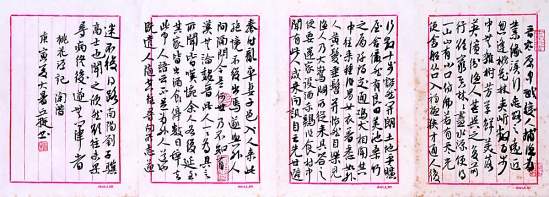 晉太元中武陵人捕魚為
業緣溪行忘路之遠近
忽逢桃花林夾岸數百步
中無雜樹芳草鮮美落
英繽紛漁人甚異之復前
行欲窮其林林盡水源便得
一山山有小口彷彿若有光
便舍船從口入初極狹才通人復
行數十步豁然開朗土地平曠
屋舍儼然有良田美池桑竹
之屬阡陌交通雞犬相聞其
中往來種作男女衣著悉如外
人黃髮垂髫並怡然自樂見
漁人乃大驚問所從來具答之
便要還家設酒殺雞作食村中
聞有此人咸來問訊自云先世避
秦時亂率妻子邑人來此
絕境不復出焉遂與外人
間隔問今是何世乃不知有
漢無論魏晉此人一一為具言
所聞皆嘆惋餘人各復延至
其家皆出酒食停數日辭去
此中人語云不足為外人道
人隨其往尋向所誌遂
迷不復得路南陽劉子驥
高士也聞之欣然規往未果
尋病終後遂無問津者
桃花源記 陶潛
庚寅夏大暑 書